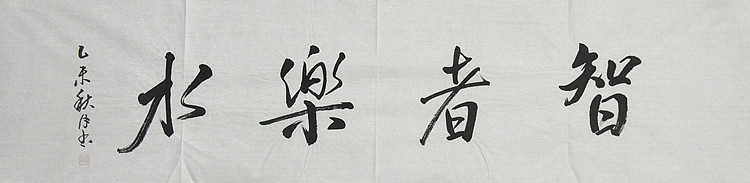 智者樂水
乙未秋